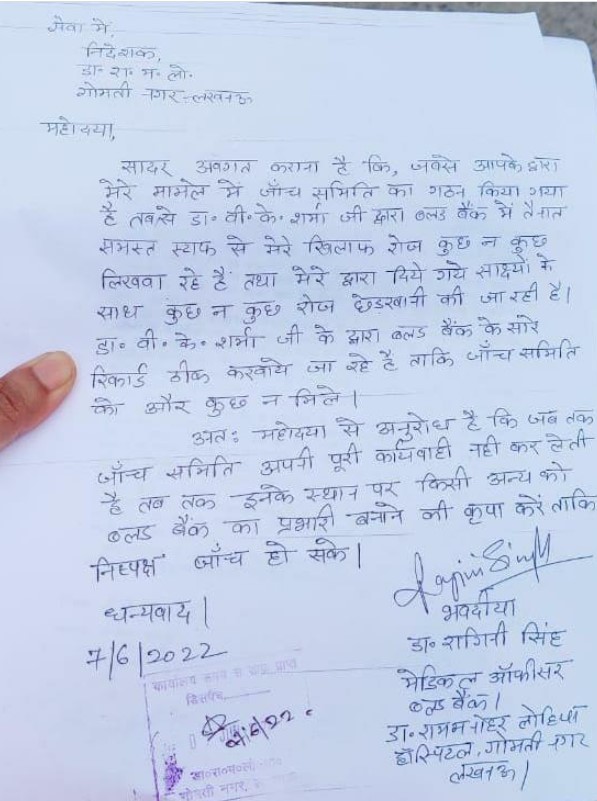 सेवा में,
निदेशक,
डा॰ रा॰ म॰ लो॰
गोमती नगर-लखनऊ
महोदया,
सादर अवगत कराना है कि, जबसे आपके द्वारा
मेरे मामले में जाँच समिति का गठन किया गया
है तबसे डा॰ वी॰ के॰ शर्मा जी द्वारा ब्लड बैंक में तैनात
समस्त स्टाफ से मेरे खिलाफ रोज कुछ न कुछ
लिखवा रहे हैं तथा मेरे द्वारा दिये गये साक्ष्यों के
साथ कुछ न कुछ रोज छेडखानी की जा रही है।
डा॰ वी॰ के॰ शर्मा जी के द्वारा ब्लड बैंक के सारे
रिकार्ड ठीक करवाये जा रहे है ताकि जाँच समिति
को और कुछ न मिले।
अतः महोदया से अनुरोध है कि जब तक
जाँच समिति अपनी पूरी कार्यवाही नही कर लेती
है तब तक इनके स्थान पर किसी अन्य को
ब्लड बैंक का प्रभारी बनाने की कृपा करें ताकि
निष्पक्ष जाँच हो सके।
धन्यवाद।
7/6/2022
Ragini Singh
भवदीया
डा॰ रागिनी सिंह
मेडिकल ऑफीसर
ब्लड बैंक।
डा॰ राममनोहर लोहिया
हॉस्पिटल, गोमती नगर
लखनऊ।
प्राप्त
दिनांक
गोमती नगर,